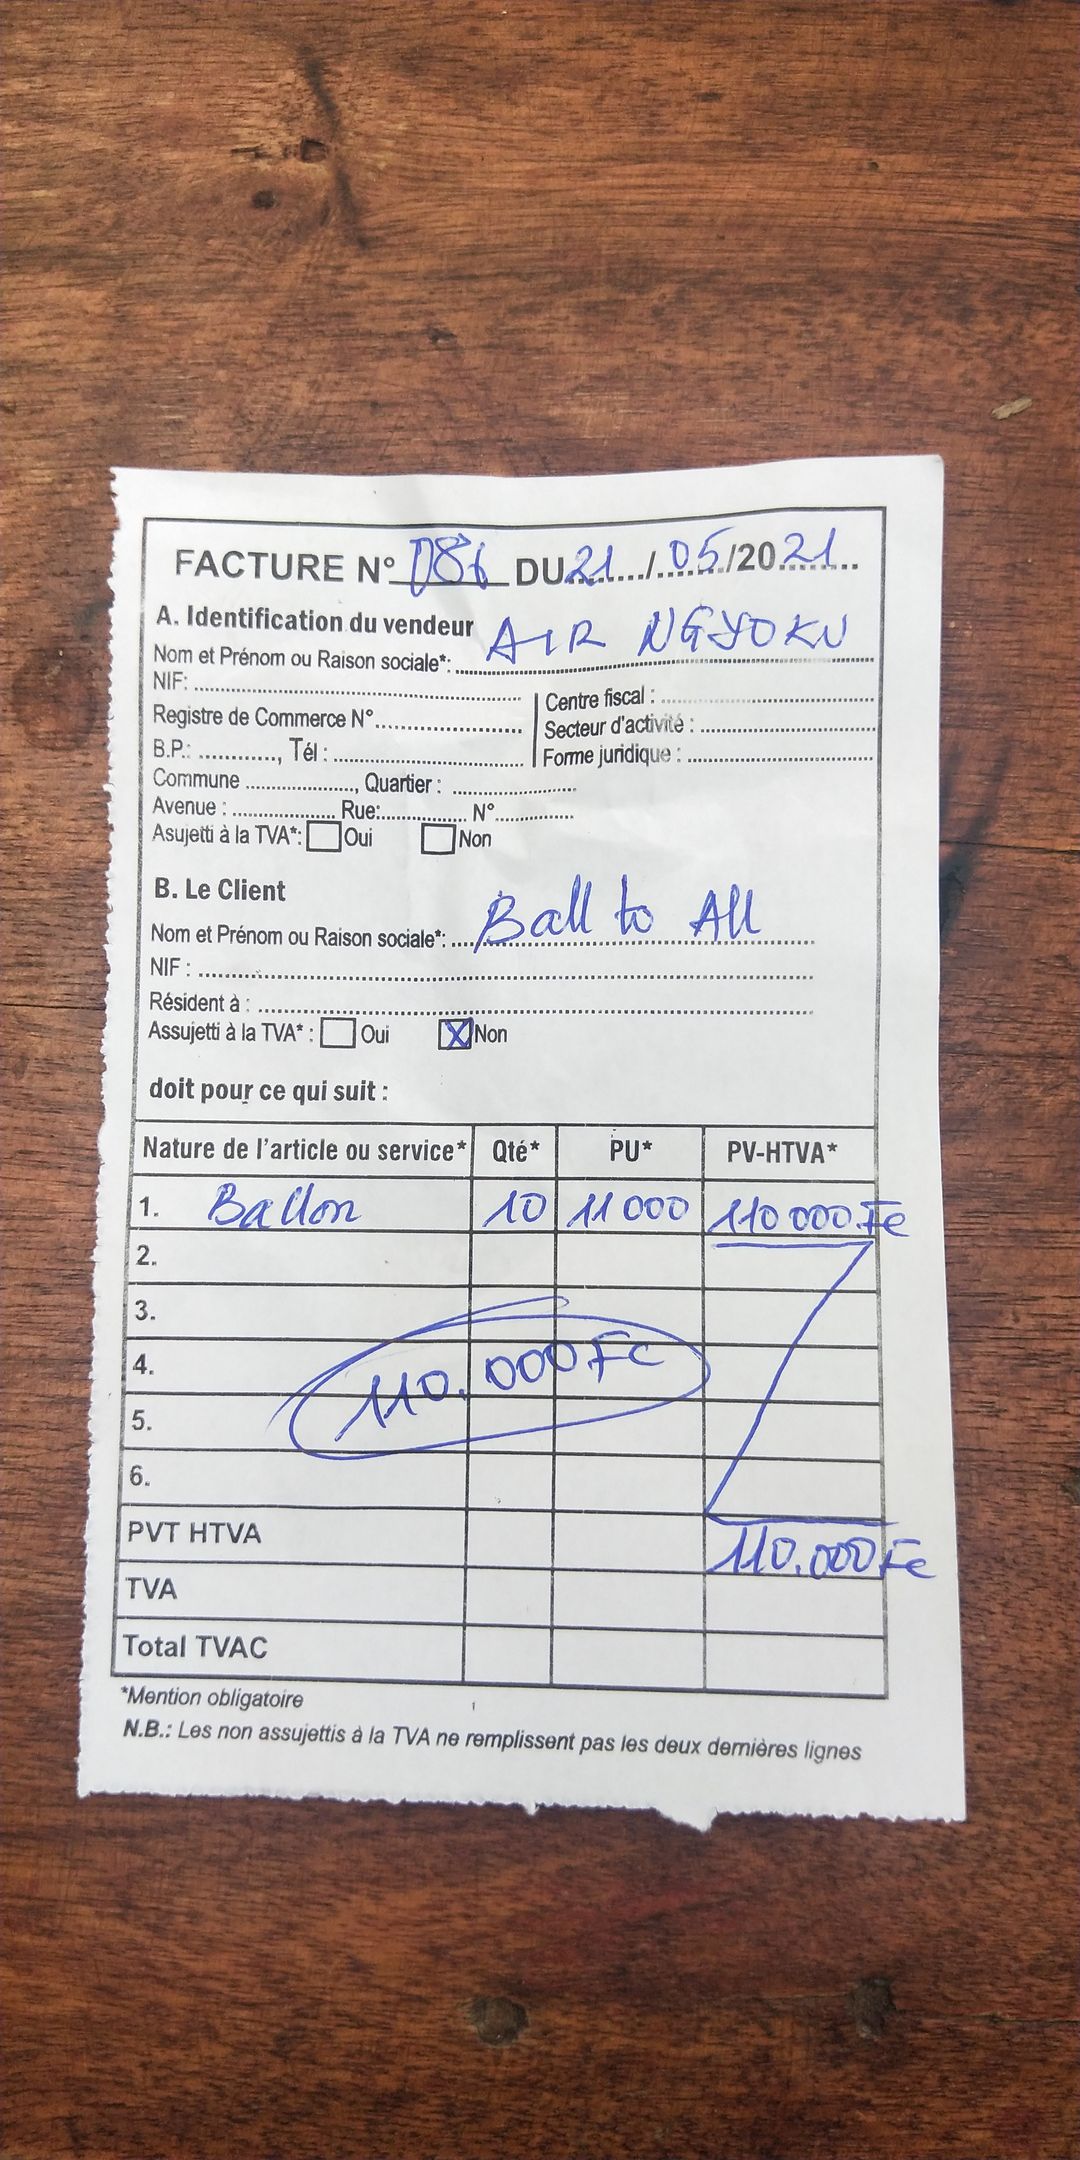 FACTURE N° 086 DU 21 / 05 /20 21
A. Identification du vendeur
Nom et Prénom ou Raison sociale*: AIR NGYOKU
NIF:
Registre de Commerce N°
B.P.: , Tél :
Centre fiscal :
Secteur d'activité :
Forme juridique :
Commune , Quartier :
Avenue : Rue: N°
Asujetti à la TVA*: Oui Non
B. Le Client
Nom et Prénom ou Raison sociale*: Ball to All
NIF :
Résident à :
Assujetti à la TVA* : Oui X Non
doit pour ce qui suit :
Nature de l'article ou service* Qté* PU* PV-HTVA*
1. Ballon 10 11 000 110 000 Fc
2.
3.
4. 110.000 Fc
5.
6.
PVT HTVA 110.000 Fc
TVA
Total TVAC
*Mention obligatoire
N.B.: Les non assujettis à la TVA ne remplissent pas les deux dernières lignes